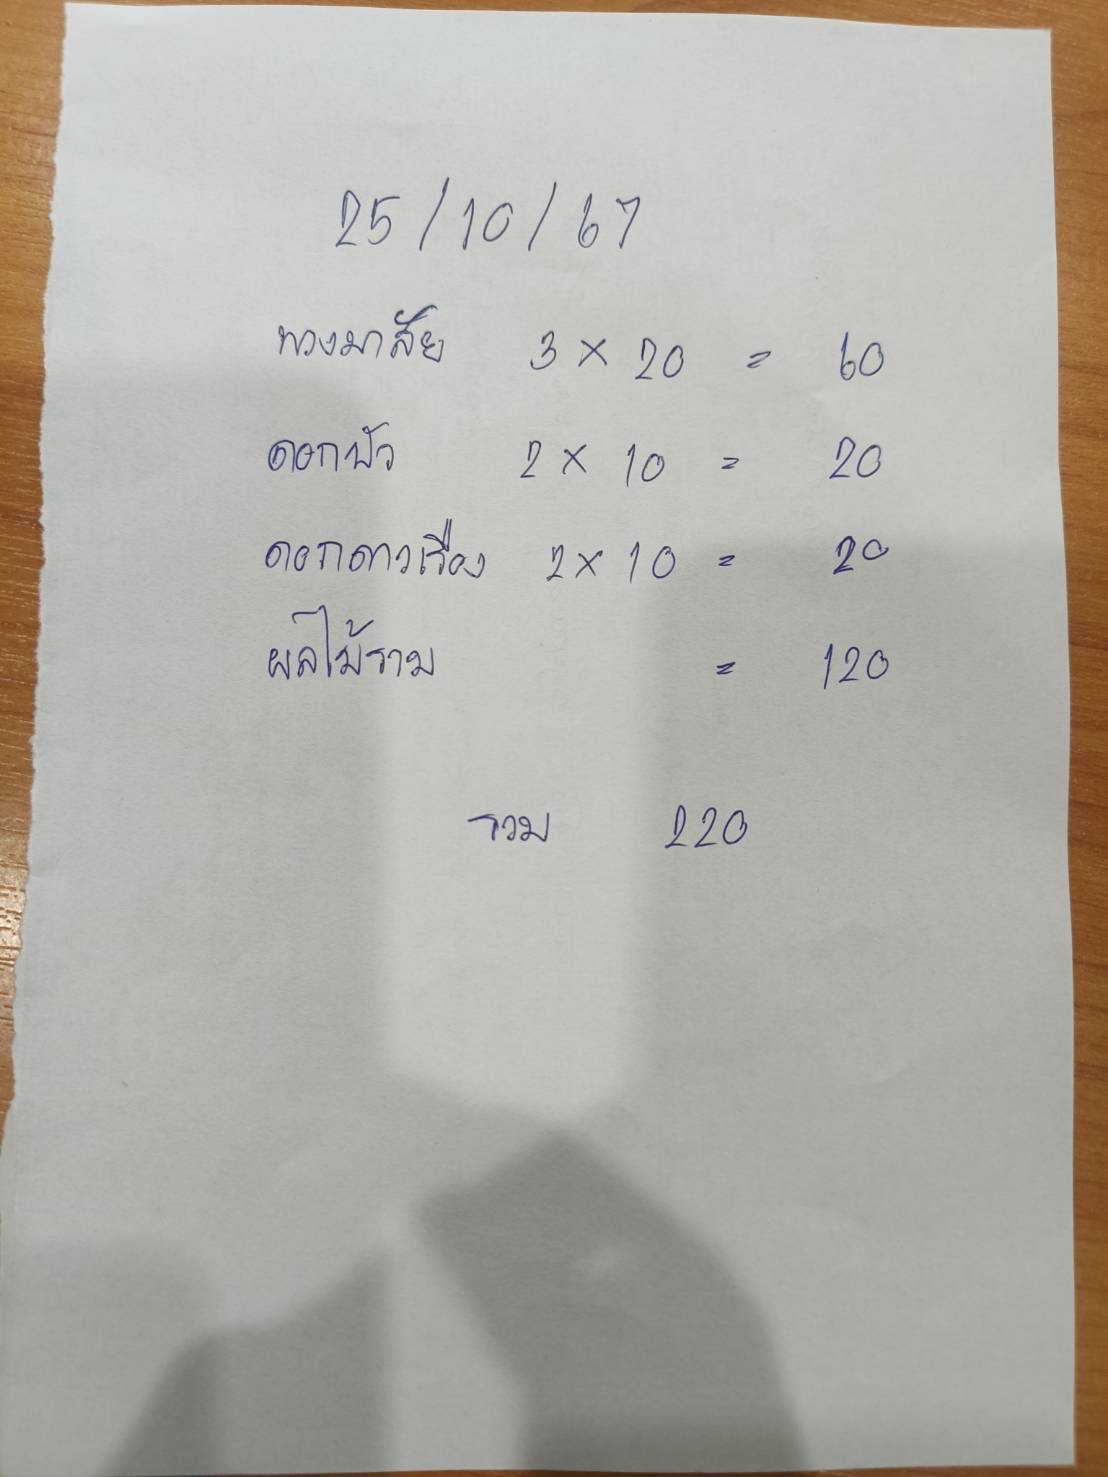 25/10/67
พวงมาลัย 3 × 20 = 60
ดอกบัว 2 × 10 = 20
ดอกดาวเรือง 2 × 10 = 20
ผลไม้รวม = 120
รวม 220